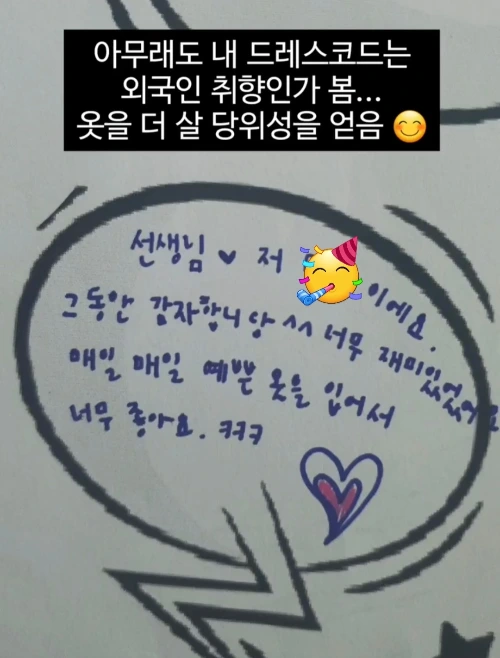 아무래도 내 드레스코드는
외국인 취향인가 봄...
옷을 더 살 당위성을 얻음 😊
선생님 ♥ 저 🥳이에요.
그동안 감자합니당 ^^ 너무 재미있었어요
매일 매일 예쁜 옷을 입어서
너무 좋아요. ㅋㅋㅋ